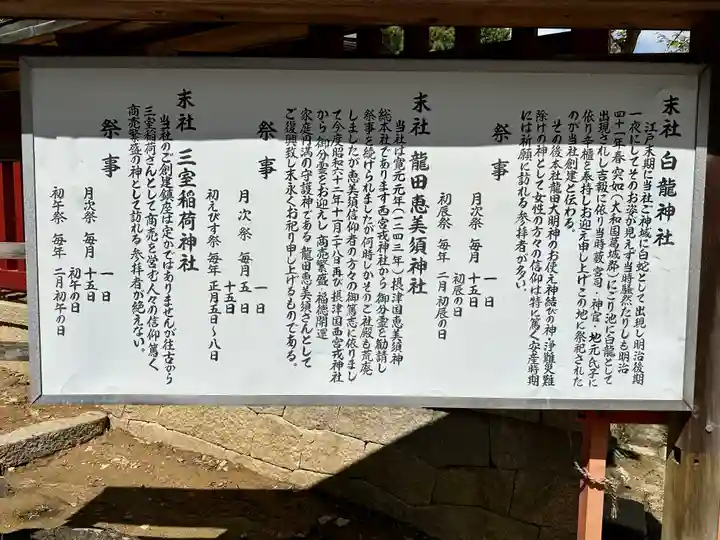 末社 白龍神社
江戸末期に当社ご神域に白蛇として出現し明治後期
一夜にしてそのお姿が見えず当時騒然たりしも明治
四十一年春 突如(大和国葛城郡)にごり池に白龍として
出現されし吉報に依り当時藪宮司・神官・地元氏子に
依り辛櫃を奉持しお迎え申し上げこの地に祭祀された
のが当社創建と伝わる。
その後本社龍田大明神のお使え神縁結びの神・浄難災難
除けの神として女性の方々の信仰は特に篤く安産時期
には祈願に訪れる参拝者が多い。
祭事
月次祭 毎月 一日
十五日
初辰の日
初辰祭 毎年 二月初辰の日
末社 龍田恵美須神社
当社は寛元元年(一二四三年)摂津国恵美須神
総本社であります西宮戎神社から御分霊を勧請し
祭事を続けられましたが何時しかそのご社殿も荒廃
しましたが恵美須信仰者の方々の御篤志に依りまし
て今度昭和六十二年十一月二十八日再び摂津国西宮戎神社
から御分霊をお迎えし商売繁盛 福徳開運
家庭円満の守護神である龍田恵美須さんとして
ご復興致し末永くお祀り申し上げるものである。
祭事
月次祭 毎月 一日
五日
十五日
初えびす祭 毎年 正月五日〜八日
末社 三室稲荷神社
当社のご創建鎮座は定かではありませんが往古から
三室稲荷さんとして商売を営む人々の信仰篤く
商売繁盛の神として訪れる参拝者が絶えない。
祭事
月次祭 毎月 一日
十五日
初午の日
初午祭 毎年 二月初午の日